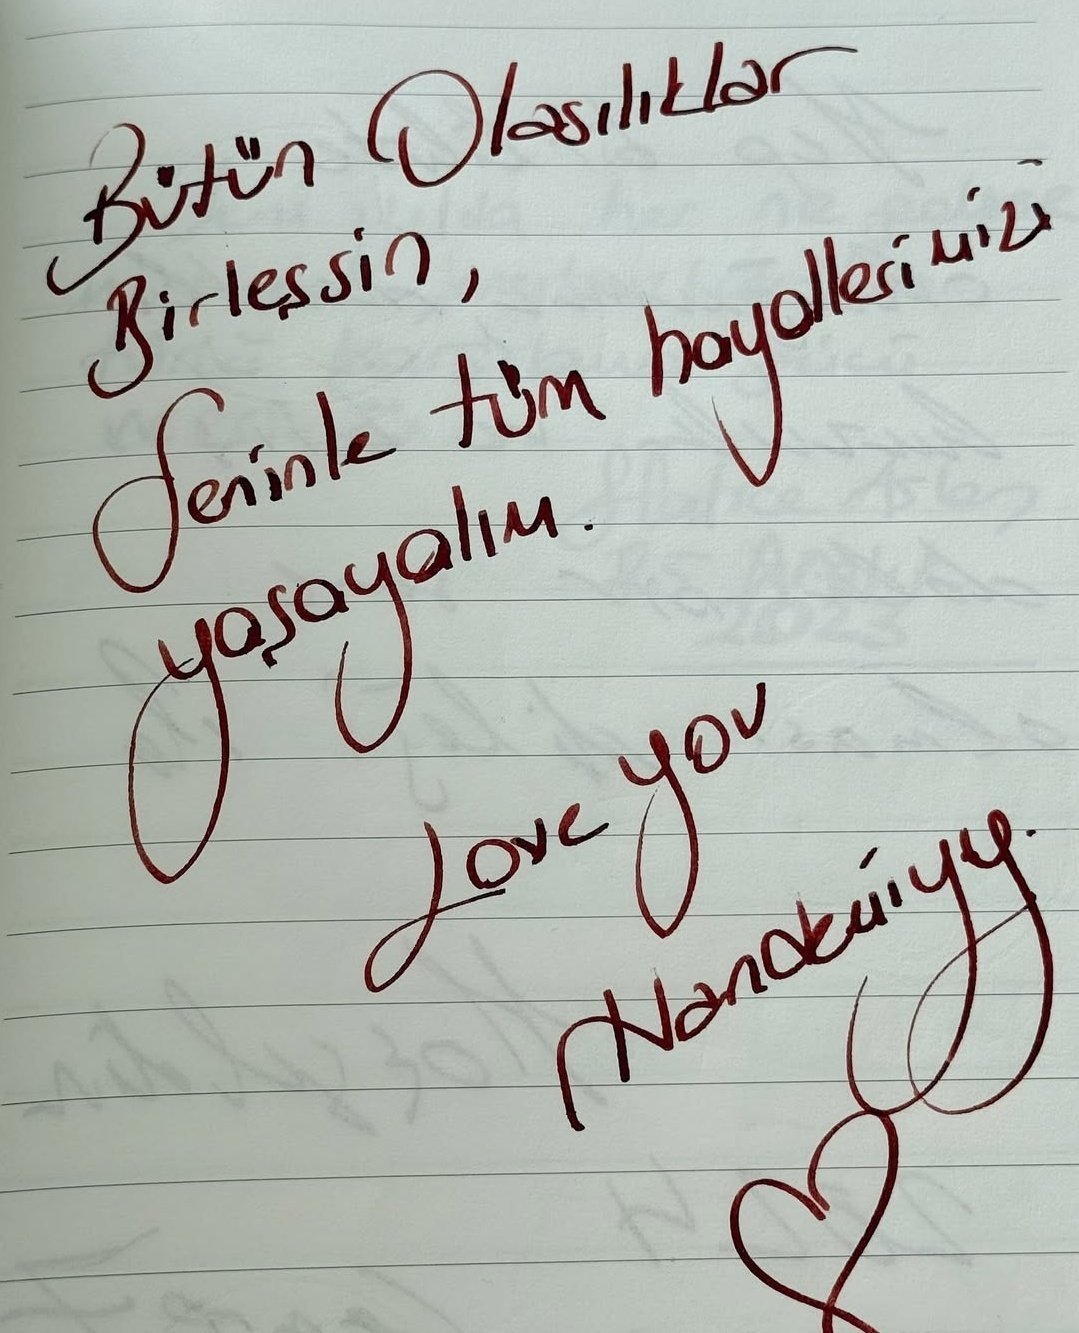 Bütün Olasılıklar
Birleşsin,
Seninle tüm hayallerimizi
yaşayalım.
Love you